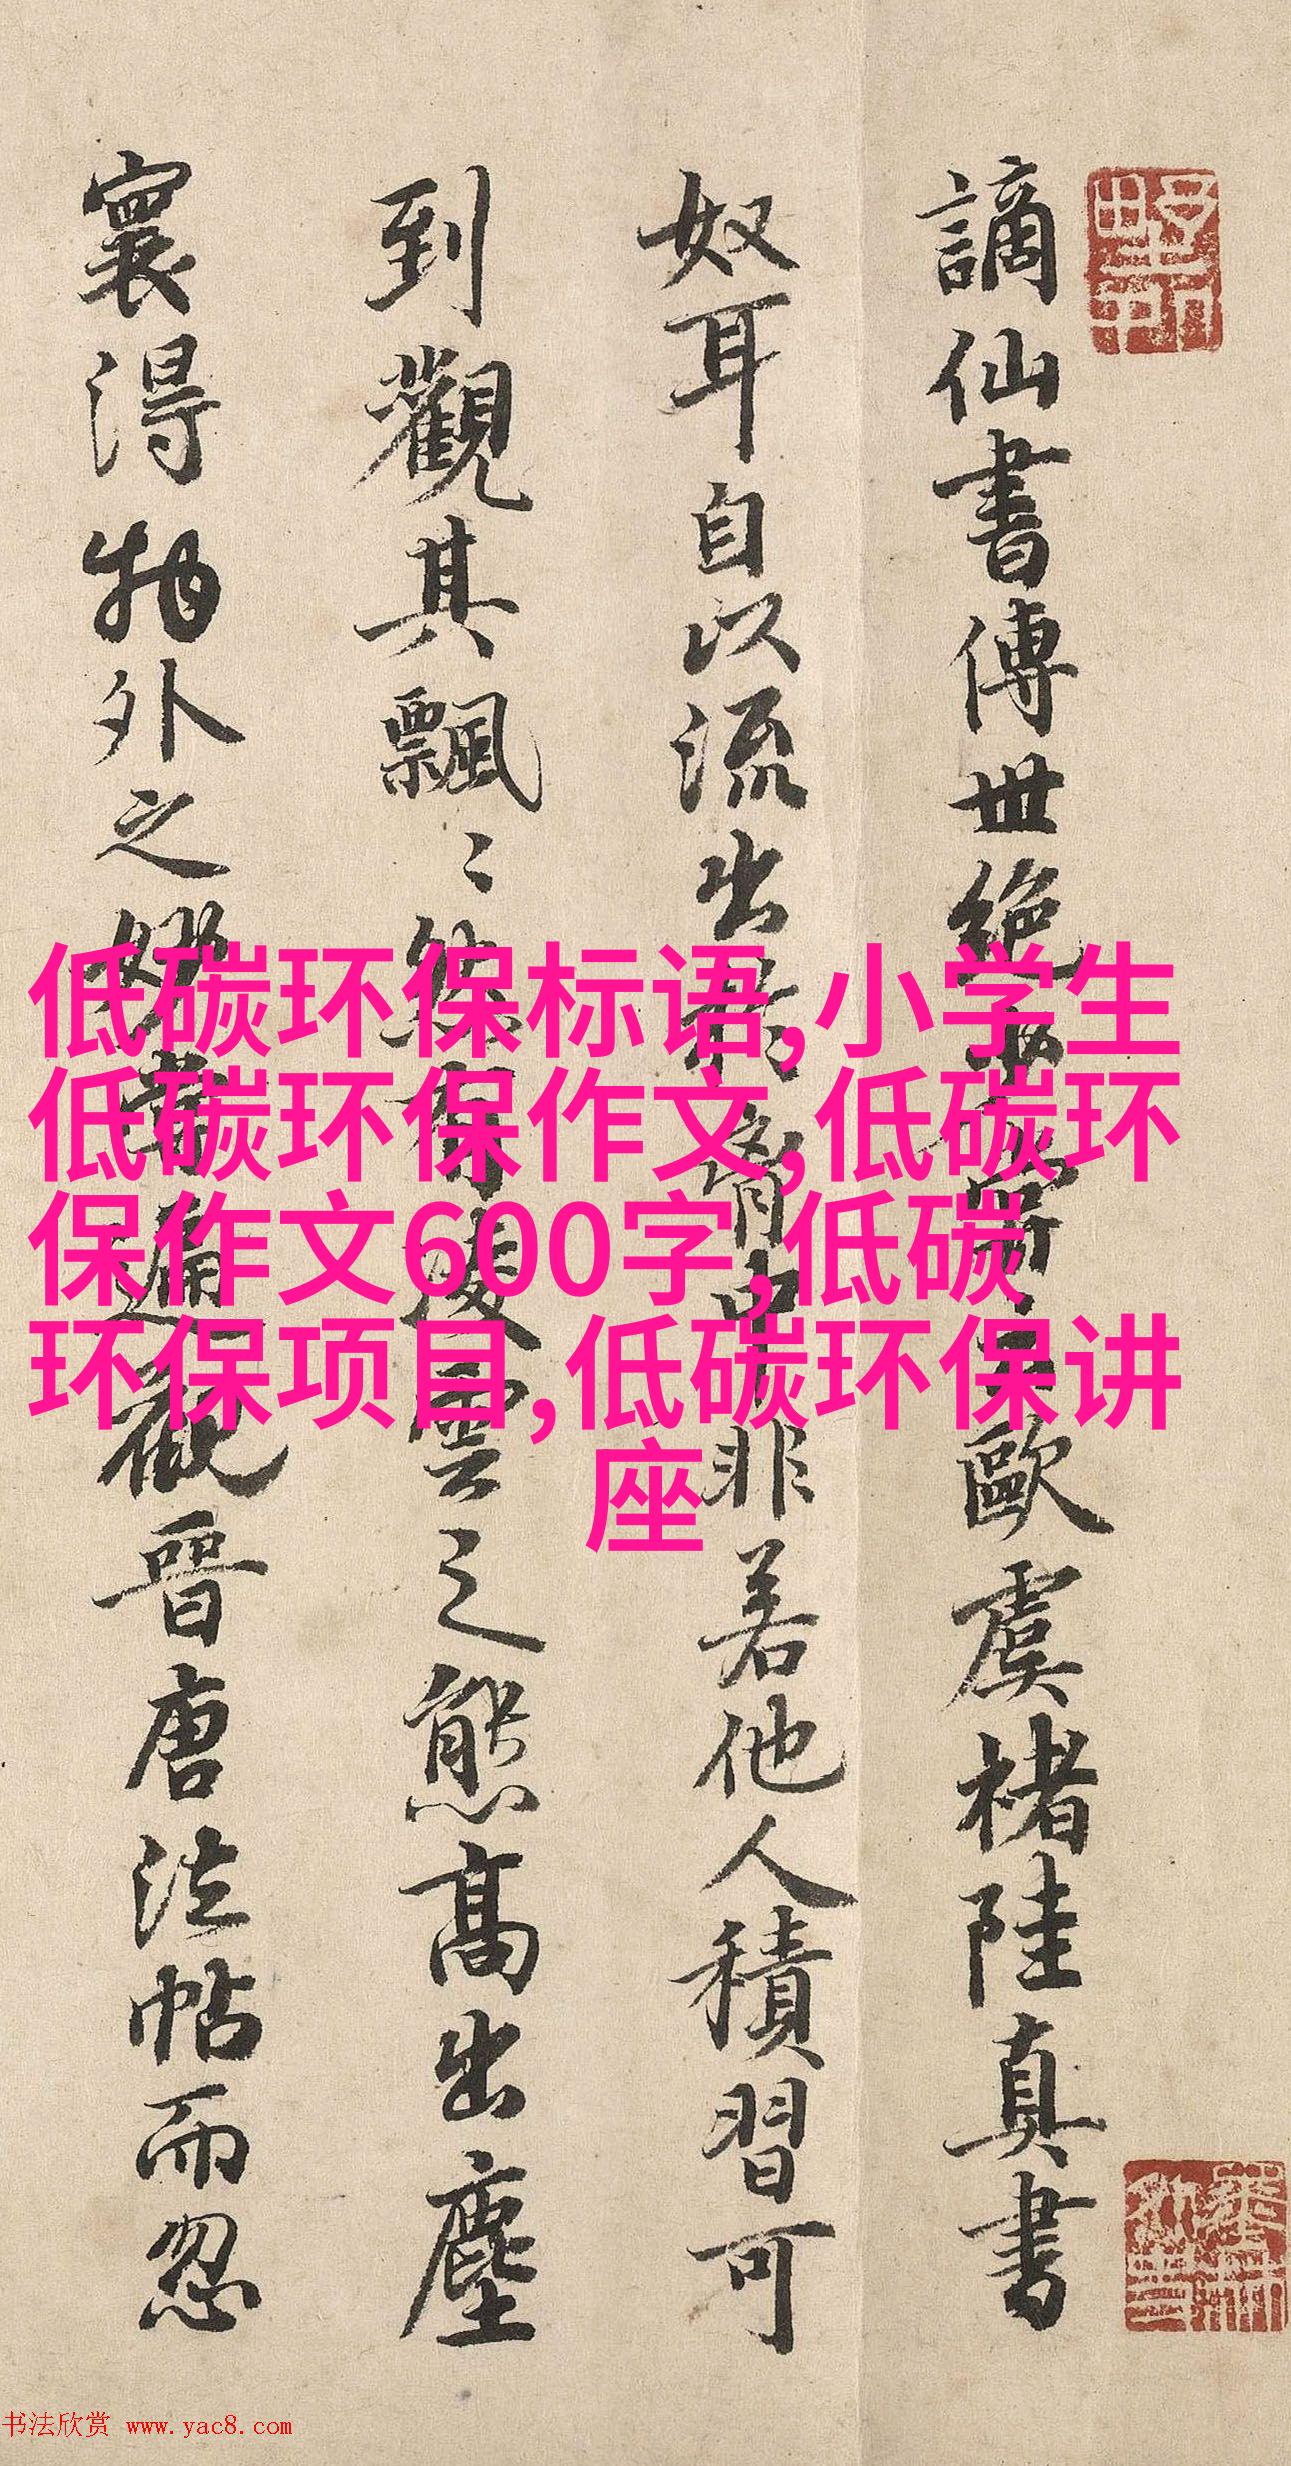 謫仙書傳世絶少嘗云歐虞褚陸真書
奴耳自以流出於胷中非若他人積習可
到觀其飄〻然有凌雲之態高出塵
寰得物外之妙嘗遍觀晉唐法帖而忽
低碳环保标语,小学生
低碳环保作文,低碳环
保作文600字,低碳
环保项目,低碳环保讲
座
书法欣赏 www.yac8.com